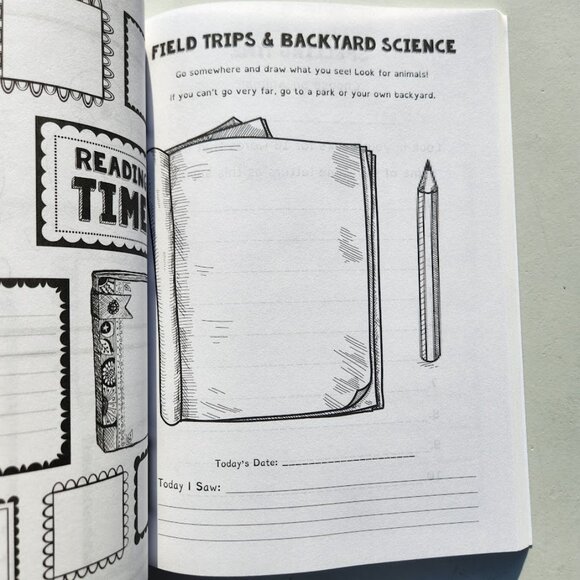 READING
TIME
FIELD TRIPS & BACKYARD SCIENCE
Go somewhere and draw what you see! Look for animals!
If you can't go very far, go to a park or your own backyard.
Today's Date:
Today I Saw: